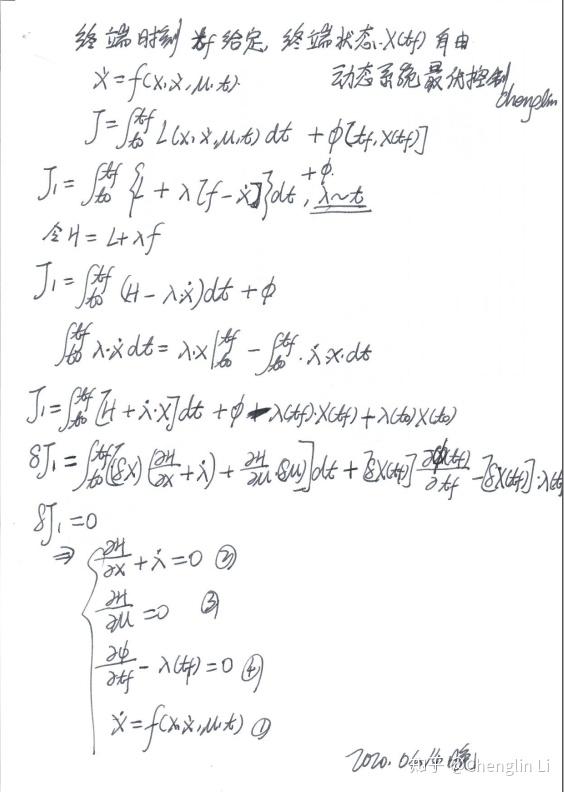 终端时刻 tf 给定, 终端状态 X(tf) 自由
ẋ = f(x,ẋ,μ,t). 动态系统最优控制
Chenglin
J = ∫_{t0}^{tf} L(x,ẋ,μ,t) dt + φ[tf, X(tf)]
J₁ = ∫_{t0}^{tf} {L + λ[f - ẋ]}dt + φ. , λ~t
令H = L + λf
J₁ = ∫_{t0}^{tf} (H - λ·ẋ)dt + φ
∫_{t0}^{tf} λ·ẋ dt = λ·x |_{t0}^{tf} - ∫_{t0}^{tf} · λ̇·x·dt
J₁ = ∫_{t0}^{tf} [H + λ̇·x]dt + φ - λ(tf)·X(tf) + λ(t0)X(t0)
δJ₁ = ∫_{t0}^{tf} [(δx) (∂H/∂x + λ̇) + ∂H/∂μ·δμ]dt + [δX(tf)] ∂φ(tf)/∂tf - [δX(tf)]·λ(tf)
δJ₁ = 0
⇒ { ∂H/∂x + λ̇ = 0 ②
∂H/∂μ = 0 ③
∂φ/∂tf - λ(tf) = 0 ④
ẋ = f(x,ẋ,μ,t) ①
知乎 @Chenglin Li